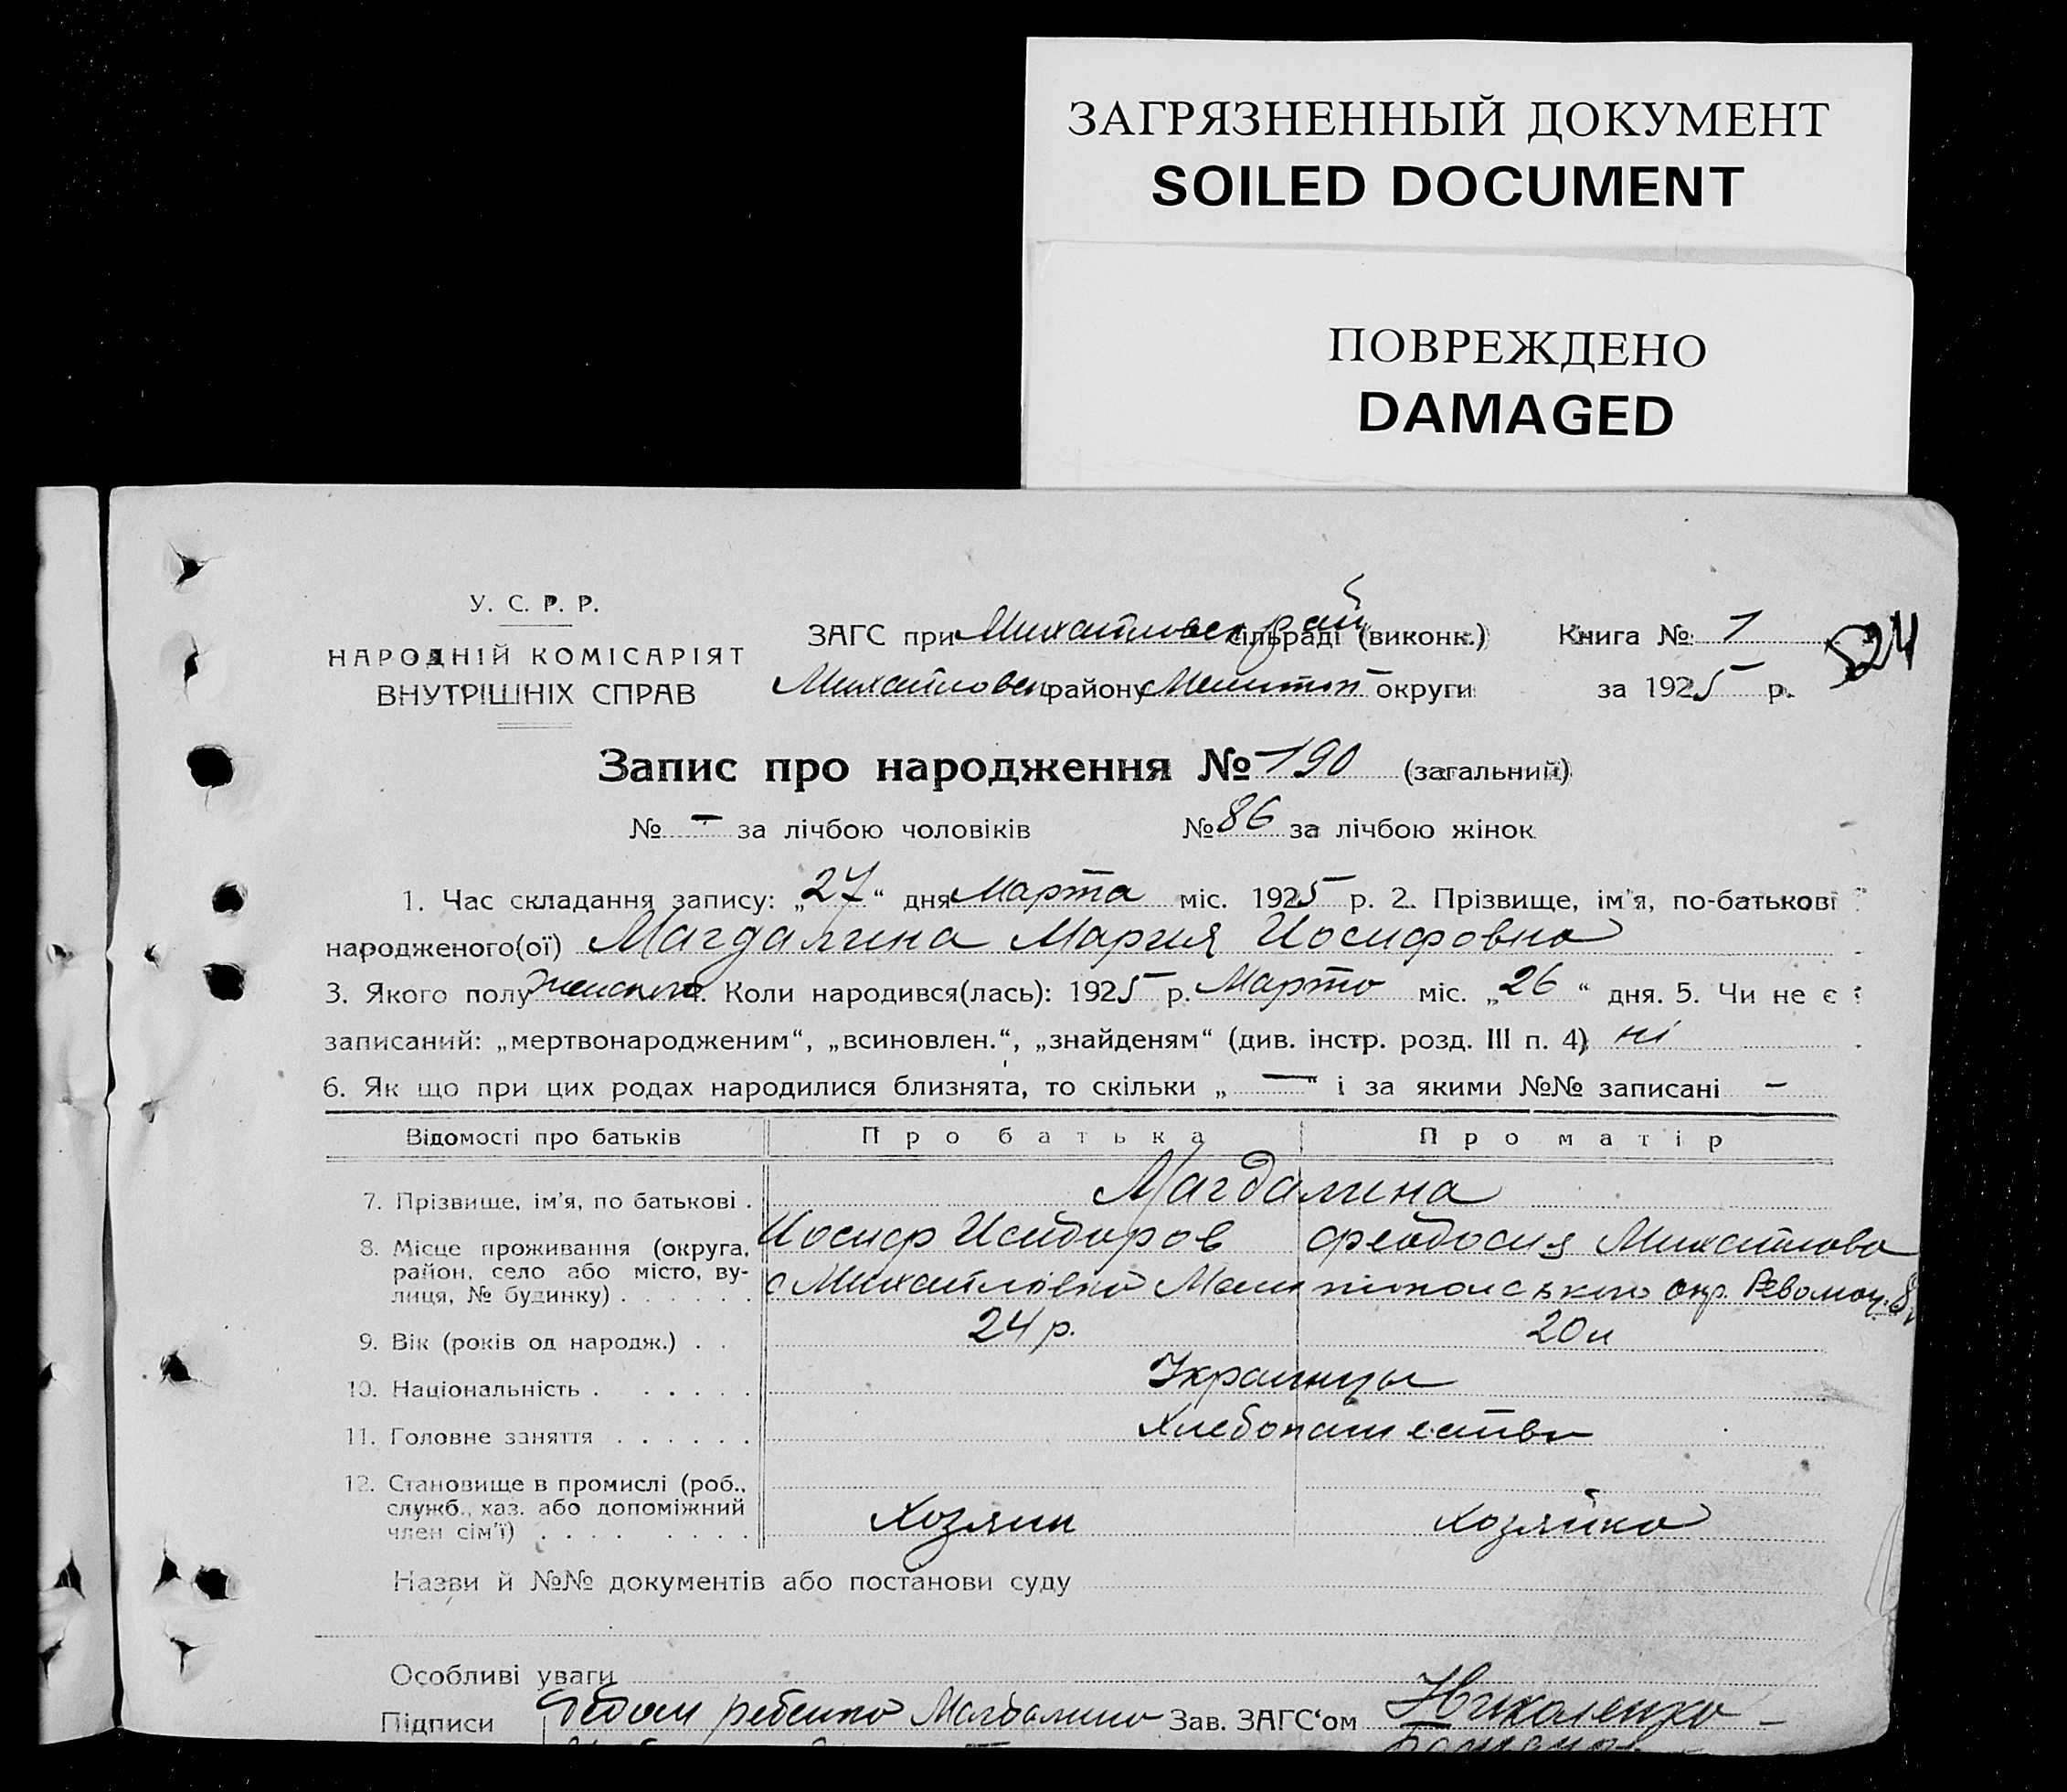 ЗАГРЯЗНЕННЫЙ ДОКУМЕНТ
SOILED DOCUMENT
ПОВРЕЖДЕНО
DAMAGED
У. С. Р. Р.
НАРОДНІЙ КОМІСАРІЯТ
ВНУТРІШНІХ СПРАВ
ЗАГС при Михайловск рай сільраді (виконк.)
Михайловск району Мелитоп округи
Книга № 1
за 1925 р.
524
Запис про народження № 190 (загальний)
№ - за лічбою чоловіків № 86 за лічбою жінок
1. Час складання запису: „27“ дня Марта міс. 1925 р. 2. Прізвище, ім'я, по-батькові
народженого(ої) Магдалина Мария Иосифовна
3. Якого полу женского. Коли народився(лась): 1925 р. Марта міс. „26“ дня. 5. Чи не є
записаний: „мертвонародженим“, „всиновлен.“, „знайденям“ (див. інстр. розд. III п. 4) ні
6. Як що при цих родах народилися близнята, то скільки „—“ і за якими №№ записані -
Відомості про батьків Про батька Про матір
7. Прізвище, ім'я, по батькові . Магдалина
Иосиф Исидоров Феодосия Михайлова
8. Місце проживання (округа, район, село або місто, вулиця, № будинку) . . . . . . с Михайлівка Мелітопольського окр. Революц. 8
9. Вік (років од народж.) . . 24 р. 20 л
10. Національність . . . . . . Украинцы
11. Головне заняття . . . . . . Хлебопашество
12. Становище в промислі (роб., служб., хаз. або допоміжний член сім'ї) . . . . Хозяин Хозяйка
Назви й №№ документів або постанови суду
Особливі уваги
Підписи ребенка Магдалина Зав. ЗАГС'ом Николенко